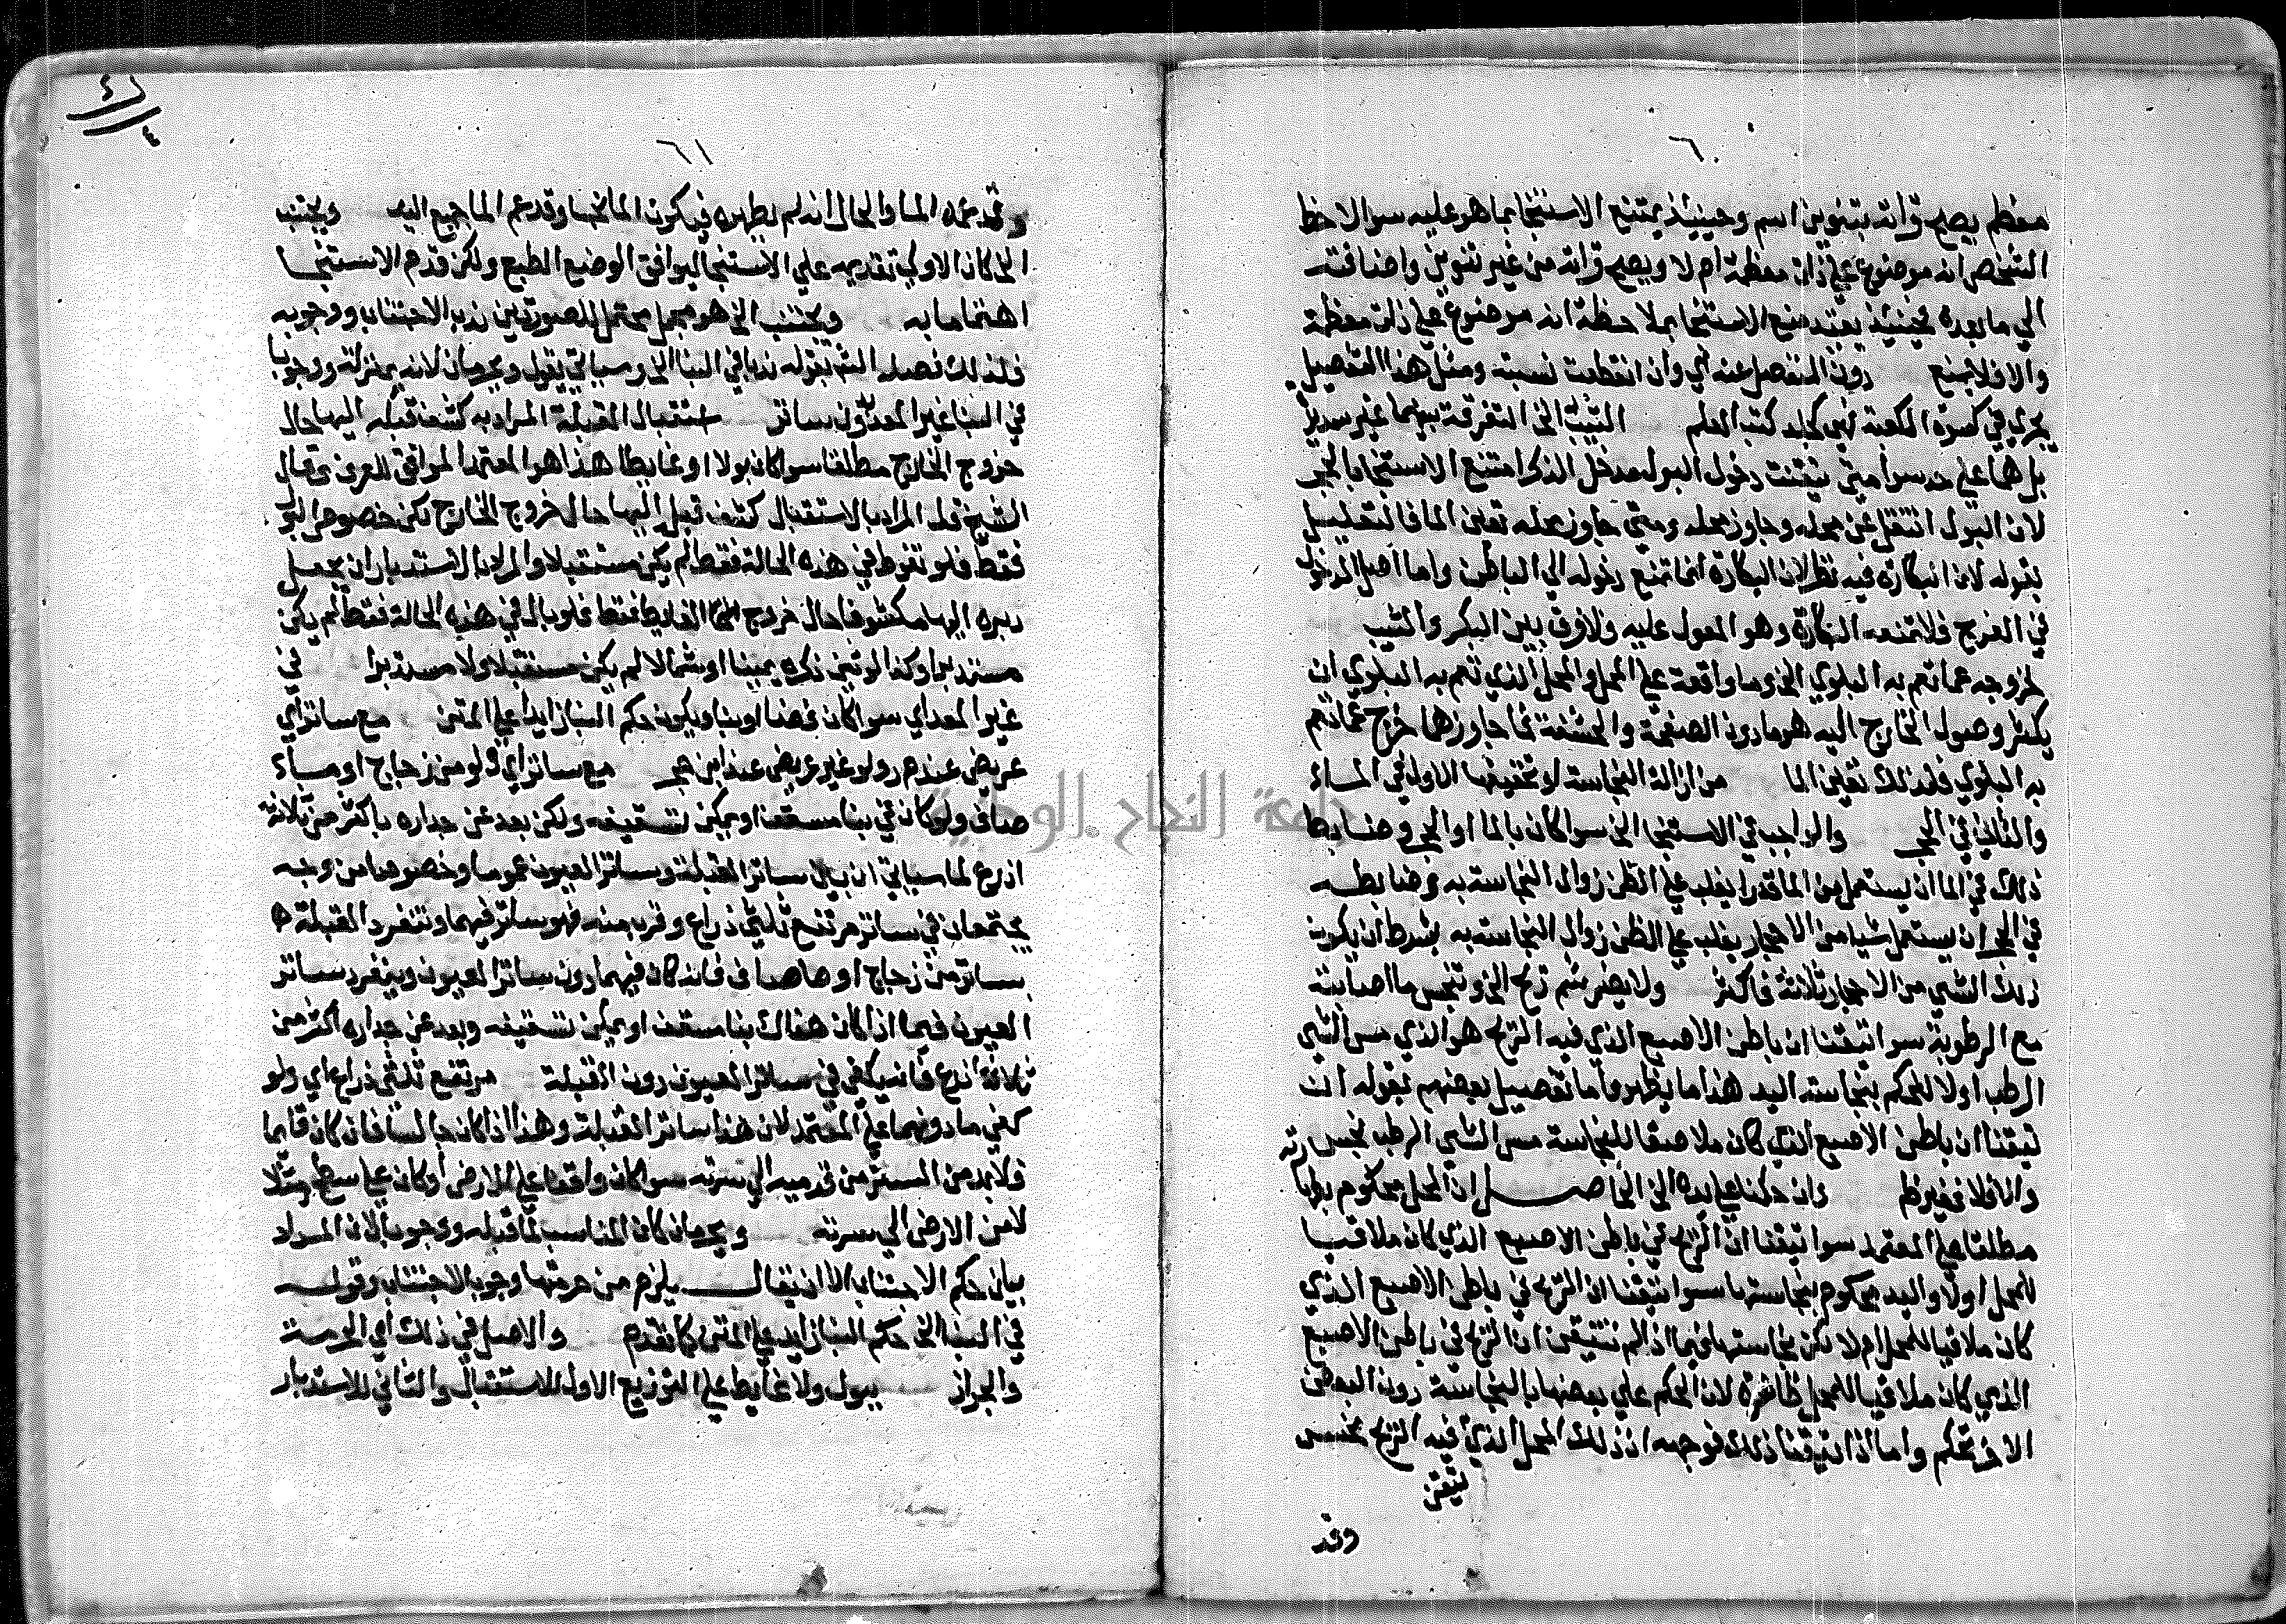 ٦٠
معظم يصح قرأته بتنوين اسم وحينيذ يمتنع الاستنجا بما هو عليه سوا لاحظ
الشخص انه موضوع علي ذات معظمة ام لا ويصح قرأته من غير تنوين واضافته
الي ما بعده فحينيذ يقيد منع الاستنجا بملاحظة انه موضوع علي ذات معظمة
والا فلا يمتنع دون المنفصل عنه اي وان انقطعت نسبته ومثل هذا التفصيل
يجري في كسوة الكعبة فهي كجلد كتب العلم الثيب الخ التفرقة بينهما غير سديد
بل هما علي حد سوا متي تيقنت دخول البول مدخل الذكر امتنع الاستنجا بالحجر
لان البول انتقل عن محله وجاوز محله ومتي جاوز محله تعين الما فالتعليل
بقوله لان البكارة فيه نظر لان البكارة انما تمنع دخوله الي الباطن واما اصل الدخول
في الفرج فلا تمنعه البكارة وهو المعول عليه ولا فرق بين البكر والثيب
لخروجه عما تعم به البلوي الخ وما واقعة علي المحل والمحل الذي تعم به البلوي ان
يكثر وصول الخارج اليه هو ما دون الصفحة والحشفة فما جاوزها خرج عما تعم
به البلوي فلذلك تعين الما من ازالة النجاسة او تخفيفها الاول في الماء
والثاني في الحجر والواجب في الاستنجا الخ سوا كان بالما او الحجر وضابط
ذلك في الما ان يستعمل من الما قدرا يغلب علي الظن زوال النجاسة به وضابطه
في الحجر ان يستعمل شيا من الاحجار يغلب علي الظن زوال النجاسة به بشرط ان يكون
ذلك الشي من الاحجار ثلاثة فاكثر ولا يضر شم ريح الخ وتنجس ما اصابته
مع الرطوبة سوا تيقنا ان باطن الاصبع الذي فيه الريح هو الذي مس الشي
الرطب او لا للحكم بنجاسة اليد هذا ما يظهر واما تفصيل بعضهم بقوله ان
تيقنا ان باطن الاصبع الذي كان ملاصقا للنجاسة مس الشي الرطب نجس
والا فلا فغير ظ وان حكمنا علي يده الخ الحاصل ان المحل محكوم بطهارته
مطلقا علي المعتمد سوا تيقنا ان الريح في باطن الاصبع الذي كان ملاقيا
للمحل او لا واليد محكوم بنجاستها سوا تيقنا ان الريح في باطن الاصبع الذي
كان ملاقيا للمحل ام لا لكن نجاستها فيما اذا لم نتيقن ان الريح في باطن الاصبع
الذي كان ملاقيا للمحل ظاهرة لان الحكم علي بعضها بالنجاسة دون البعض
الاخر تحكم واما اذا تيقنا ذلك فوجهه ان ذلك المحل الذي فيه الريح نجس
وقد
٦١
وقد عمه الما والحال انه لم يطهره فيكون الما نجسا وقد عم الما جميع اليد ويجتنب
الخ كان الاولي تقديمه علي الاستنجا ليوافق الوضع الطبع ولكن قدم الاستنجا
اهتماما به ويجتنب الخ هو مجمل محتمل للصورتين ندب الاجتناب ووجوبه
فلذلك فصله الش بقوله ندبا في البنا الخ وسياتي يقول ويحرمان لانه بمنزلة ووجوبا
في البنا غير المعد دون ساتر استقبال القبلة المراد به كشف قبله اليها حال
خروج الخارج مطلقا سوا كان بولا او غايطا هذا هو المعتمد الموافق للعرف وقال
الشيخ المراد بالاستقبال كشف قبل اليها حال خروج الخارج لكن خصوص البول
فقط فلو تغوط في هذه الحالة فقط لم يكن مستقبلا والمراد بالاستدبار ان يجعل
دبره اليها مكشوفا حال خروج الغايط فقط فلو بال في هذه الحالة فقط لم يكن
مستدبرا وكذا لو ثني ذكره يمينا او شمالا لم يكن مستقبلا ولا مستدبرا في
غير المعد اي سوا كان فضا او بنا ويكون حكم البنا زايدا علي المتن مع ساتر اي
عريض عند م ر ولو غير عريض عند ابن حجر مع ساتر اي ولو من زجاج او ماء
صافي ولو كان في بنا مسقف او يمكن تسقيفه ولكن بعد عن جداره باكثر من ثلاثة
اذرع لما سياتي ان بين ساتر القبلة وساتر العيون عموما وخصوصا من وجه
يجتمعان في ساتر مرتفع ثلثي ذراع وقرب منه فهو ساتر فيهما وتنفرد القبلة
بساتر من زجاج او ما صافي فانه كاف فيها دون ساتر العيون وينفرد ساتر
العيون فيما اذا كان هناك بنا مسقف او يمكن تسقيفه وبعد عن جداره اكثر من
ثلاثة اذرع فانه يكفي في ساتر العيون دون القبلة مرتفع ثلثي ذراع اي ولو
كفي ما دونهما علي المعتمد لان هذا ساتر القبلة وهذا اذا كان جالسا فان كان قايما
فلا بد من الستر من قدميه الي سرته سوا كان واقفا علي الارض او كان علي سطح مثلا
لا من الارض الي سرته ويحرمان كان المناسب لما قبله ووجوبا لان المراد
بيان حكم الاجتناب الا ان يقال يلزم من حرمتها وجوب الاجتناب وقوله
في البنا الخ حكم البنا زايد علي المتن كما تقدم والاصل في ذلك اي الحرمة
والجواز ببول ولا غايط علي التوزيع الاول للاستقبال والثاني للاستدبار
جامعة النجاح الوطنية